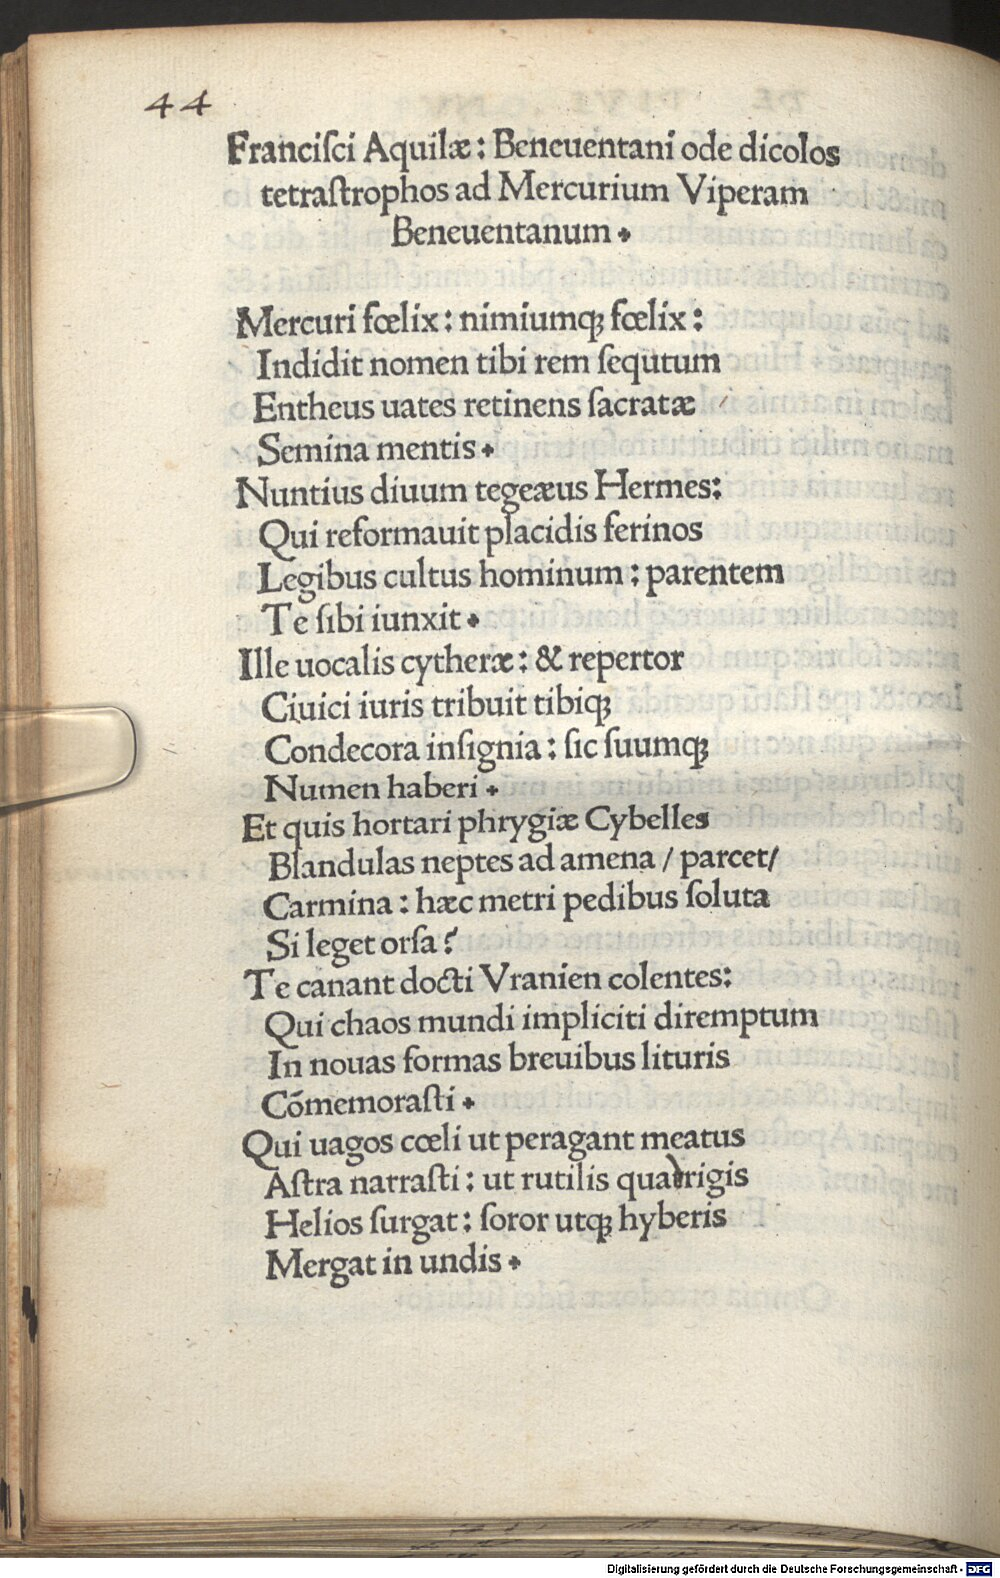 44
Franciſci Aquilæ : Beneuentani ode dicolos
tetraſtrophos ad Mercurium Viperam
Beneuentanum .
Mercuri fœlix : nimiumqꝫ fœlix :
Indidit nomen tibi rem ſequutum
Entheus uates retinens ſacratæ
Semina mentis .
Nuntius diuum tegeæus Hermes:
Qui reformauit placidis ferinos
Legibus cultus hominum : parentem
Te ſibi iunxit .
Ille uocalis cytheræ : & repertor
Ciuici iuris tribuit tibiqꝫ
Condecora inſignia : ſic ſuumqꝫ
Numen haberi .
Et quis hortari phrygiæ Cybelles
Blandulas neptes ad amena / parcet/
Carmina : hæc metri pedibus ſoluta
Si leget orſa ?
Te canant docti Vranien colentes:
Qui chaos mundi impliciti diremptum
In nouas formas breuibus lituris
Cōmemoraſti .
Qui uagos cœli ut peragant meatus
Aſtra narraſti : ut rutilis quadrigis
Helios ſurgat : ſoror utqꝫ hyberis
Mergat in undis .
Digitalisierung gefördert durch die Deutsche Forschungsgemeinschaft - DFG